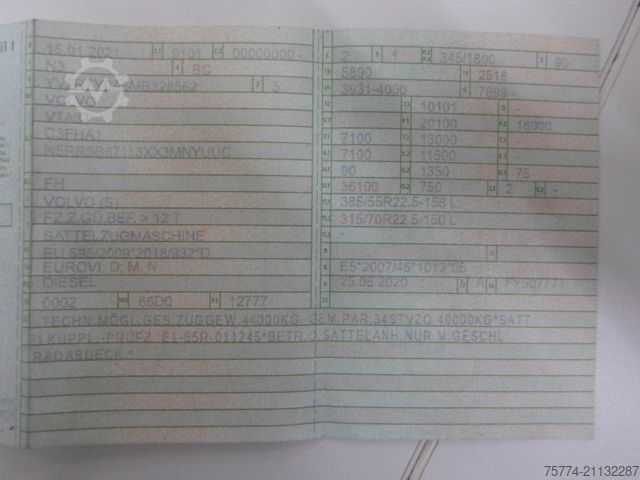 15.01.2021 2.1 0101 2.2 00000000 -
N3 BC
MB328562 5
VOLVO
VTA3
C3FHA1
FH
VOLVO (S)
FZ.Z.GÜ.BEF. > 12 T
SATTELZUGMASCHINE
EU 595/2009*2018/932*D
EUROVI; D; M, N
DIESEL
0002 56D0 12777
2 1 345/1800 90
5890 2516
3931-4000 7899
10101 -
- 20100 18000
7100 13000 -
7100 11500 -
90 1350 75
36100 750 2 -
385/55R22.5-158 L
315/70R22.5-150 L
-
E5*2007/46*1013*06
25.06.2020 A
TECHN.MÖGL.GES.ZUGGEW.44000KG, GEM.PAR.34STVZO 40000KG*SATT
ELKUPPL.-PRÜFZ.:E1-55R-011245*BETR.O.SATTELANH.NUR M.GESCHL.
RADABDECK.*
75774-21132287